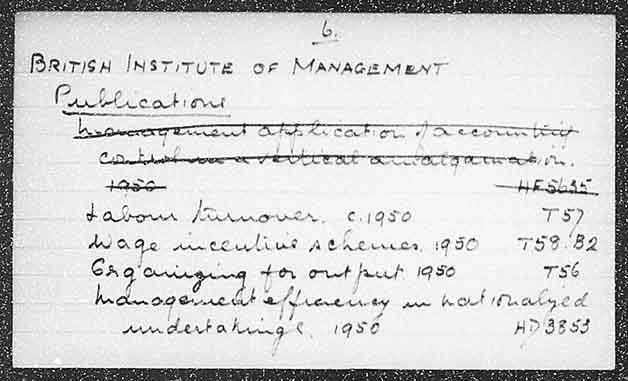 6.
BRITISH INSTITUTE OF MANAGEMENT
Publications
Management application of accounting
control in a vertical amalgamation.
1950 HF5635
Labour turnover. c.1950 T57
Wage incentive schemes. 1950 T58.B2
Organizing for output 1950 T56
Management efficiency in nationalized
undertakings. 1950 HD3853